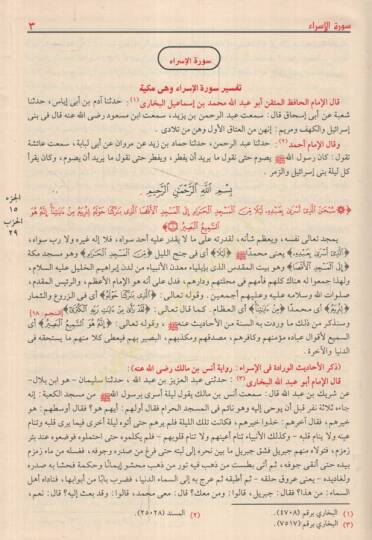 سورة الإسراء
٣
سورة الإسراء
تفسير سورة الإسراء وهى مكية
قال الإمام الحافظ المتقن أبو عبد الله محمد بن إسماعيل البخارى (١): حدثنا آدم بن أبى إياس، حدثنا
شعبة عن أبى إسحاق قال: سمعت عبد الرحمن بن يزيد، سمعت ابن مسعود رضى الله عنه قال فى بنى
إسرائيل والكهف ومريم: إنهن من العتاق الأول وهن من تلادى.
وقال الإمام أحمد (٢): حدثنا عبد الرحمن، حدثنا حماد بن زيد عن مروان عن أبى لبابة، سمعت عائشة
تقول: كان رسول الله ﷺ يصوم حتى نقول ما يريد أن يفطر، ويفطر حتى نقول ما يريد أن يصوم، وكان يقرأ
كل ليلة بنى إسرائيل والزمر.
بِسْمِ اللَّهِ الرَّحْمَٰنِ الرَّحِيمِ
﴿سُبْحَٰنَ الَّذِىٓ أَسْرَىٰ بِعَبْدِهِۦ لَيْلًا مِّنَ الْمَسْجِدِ الْحَرَامِ إِلَى الْمَسْجِدِ الْأَقْصَا الَّذِى بَٰرَكْنَا حَوْلَهُۥ لِنُرِيَهُۥ مِنْ ءَايَٰتِنَآ إِنَّهُۥ هُوَ
السَّمِيعُ الْبَصِيرُ ١﴾
الجزء
١٥
الحزب
٢٩
يمجد تعالى نفسه، ويعظم شأنه، لقدرته على ما لا يقدر عليه أحد سواه، فلا إله غيره ولا رب سواه،
﴿الَّذِى أَسْرَىٰ بِعَبْدِهِ﴾ يعنى محمدًا ﷺ ﴿لَيْلًا﴾ أى فى جنح الليل ﴿مِّنَ الْمَسْجِدِ الْحَرَامِ﴾ وهو مسجد مكة
﴿إِلَى الْمَسْجِدِ الْأَقْصَا﴾ وهو بيت المقدس الذى بإيلياء معدن الأنبياء من لدن إبراهيم الخليل عليه السلام،
ولهذا جمعوا له هناك كلهم فأمهم فى محلتهم ودارهم، فدل على أنه هو الإمام الأعظم، والرئيس المقدم،
صلوات الله وسلامه عليه وعليهم أجمعين. وقوله تعالى: ﴿الَّذِى بَٰرَكْنَا حَوْلَهُ﴾ أى فى الزروع والثمار
﴿لِنُرِيَهُ﴾ أى محمدًا ﴿مِنْ ءَايَٰتِنَآ﴾ أى العظام. كما قال تعالى: ﴿لَقَدْ رَأَىٰ مِنْ ءَايَٰتِ رَبِّهِ الْكُبْرَىٰٓ﴾ [النجم: ١٨]
وسنذكر من ذلك ما وردت به السنة من الأحاديث عنه ﷺ، وقوله تعالى: ﴿إِنَّهُ هُوَ السَّمِيعُ الْبَصِيرُ﴾ أى
السميع لأقوال عباده مؤمنهم وكافرهم، مصدقهم ومكذبهم، البصير بهم فيعطى كلا منهم ما يستحقه فى
الدنيا والآخرة.
(ذكر الأحاديث الواردة فى الإسراء: رواية أنس بن مالك رضى الله عنه):
قال الإمام أبو عبد الله البخارى (٣): حدثنى عبد العزيز بن عبد الله، حدثنا سليمان - هو ابن بلال -
عن شريك بن عبد الله قال: سمعت أنس بن مالك يقول ليلة أسرى برسول الله ﷺ من مسجد الكعبة: إنه
جاءه ثلاثة نفر قبل أن يوحى إليه وهو نائم فى المسجد الحرام فقال أولهم: أيهم هو؟ فقال أوسطهم: هو
خيرهم، فقال آخرهم: خذوا خيرهم، فكانت تلك الليلة فلم يرهم حتى أتوه ليلة أخرى فيما يرى قلبه وتنام
عينه ولا ينام قلبه - وكذلك الأنبياء تنام أعينهم ولا تنام قلوبهم - فلم يكلموه حتى احتملوه فوضعوه عند بئر
زمزم، فتولاه منهم جبريل فشق جبريل ما بين نحره إلى لبته حتى فرغ من صدره وجوفه، فغسله من ماء زمزم
بيده حتى أنقى جوفه، ثم أتى بطست من ذهب فيه تور من ذهب محشو إيمانًا وحكمة فحشا به صدره
ولغاديده - يعنى عروق حلقه - ثم أطبقه ثم عرج به إلى السماء الدنيا، فضرب بابًا من أبوابها، فناداه أهل
السماء: من هذا؟ فقال: جبريل، قالوا: ومن معك؟ قال: معى محمد، قالوا: وقد بعث إليه؟ قال: نعم،
(١) البخارى برقم (٤٧٠٨). (٢) المسند (٢٥٠٢٨)
(٣) البخارى برقم (٧٥١٧)